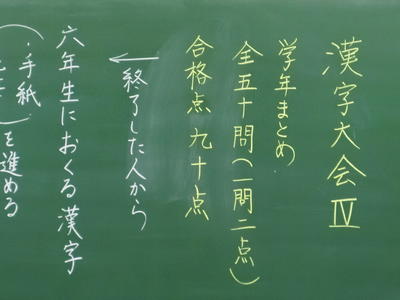 漢字大会Ⅳ
学年まとめ
全五十問(一問二点)
合格点 九十点
←終了した人から
六年生におくる漢字
(・手紙
)を進める